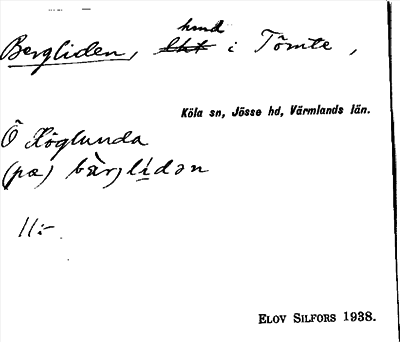 Bergliden, hmd i Tömte,
Köla sn, Jösse hd, Värmlands län.
Ö Höglunda
(pæ) bær,lidən
11:-
ELOV SILFORS 1938.